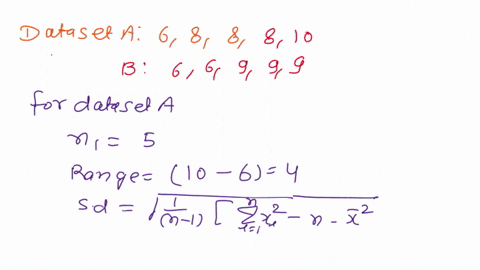 Dataset A: 6, 8, 8, 8, 10
B: 6, 6, 9, 9, 9
for dataset A
n₁ = 5
Range = (10 - 6) = 4
sd = √(1/(n-1) [ Σ_{i=1}^{n} x_i² - n - x̄²